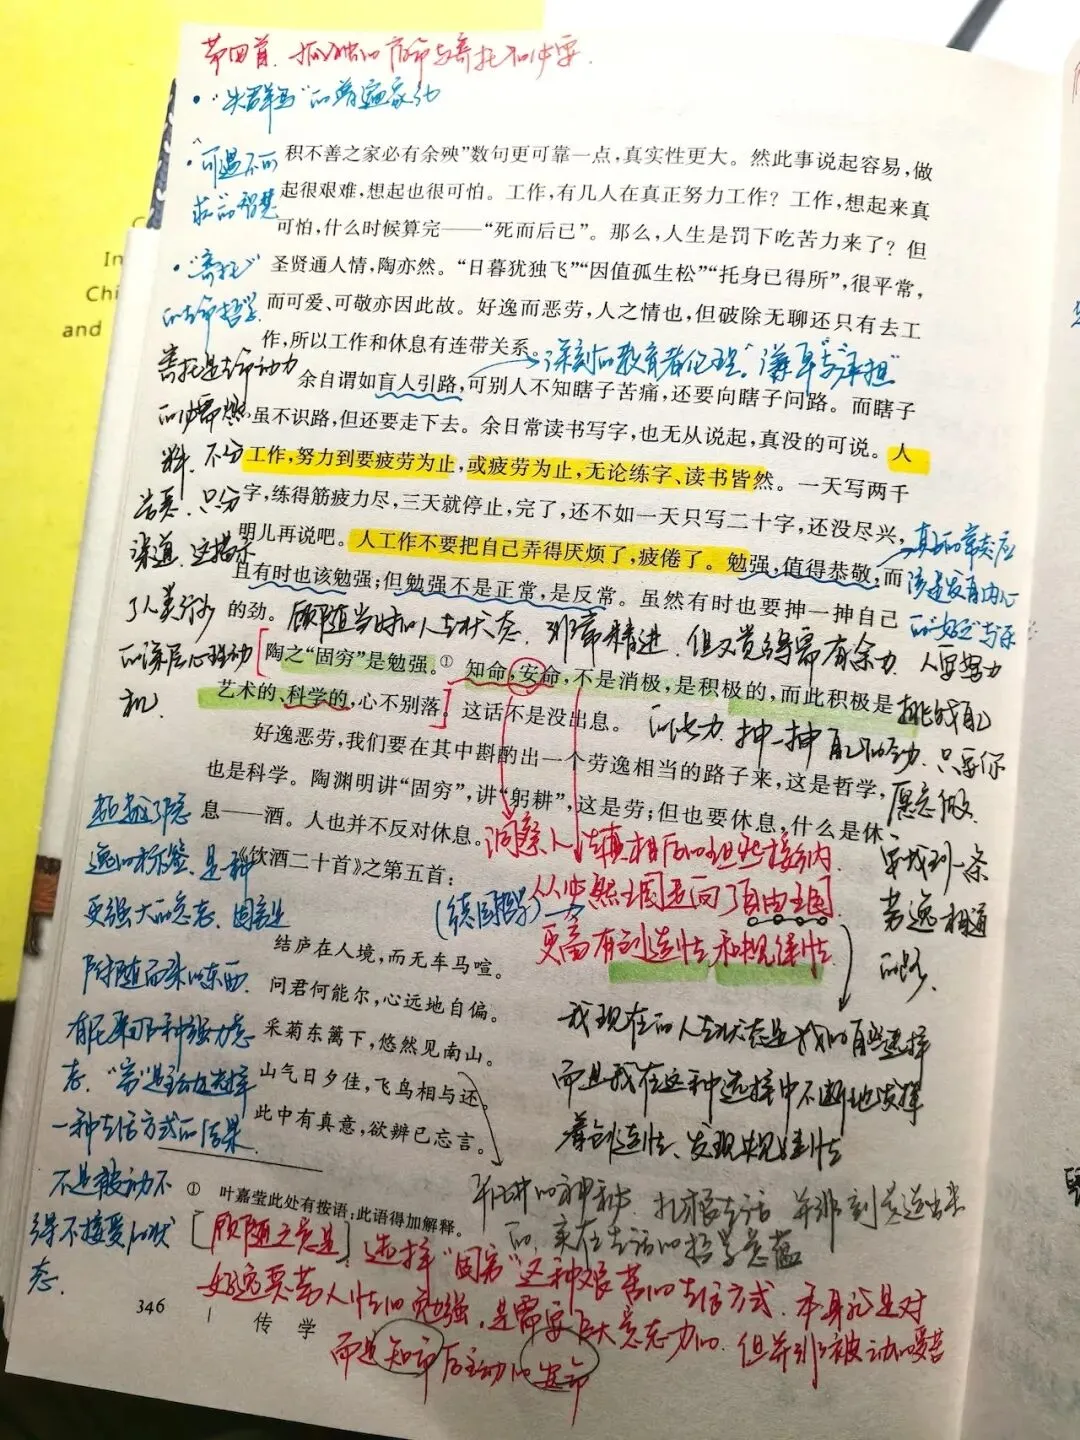 第四首、孤独的宿命与寄托和必要
• "失群鸟"的普遍象征
• 可遇不可
求的智慧
• "寄托"
的生命哲学
寄托是生命动力
的必需燃
料,不分
善恶,只分
渠道,这揭示
了人类行为
的深层心理动
机.
In
Chi
and
积不善之家必有余殃"数句更可靠一点,真实性更大。然此事说起容易,做
起很艰难,想起也很可怕。工作,有几人在真正努力工作?工作,想起来真
可怕,什么时候算完——"死而后已"。那么,人生是罚下吃苦力来了?但
圣贤通人情,陶亦然。"日暮犹独飞""因值孤生松""托身已得所",很平常,
而可爱、可敬亦因此故。好逸而恶劳,人之情也,但破除无聊还只有去工
作,所以工作和休息有连带关系。
深刻的教育者伦理。"谦卑"与"承担"
余自谓如盲人引路,可别人不知瞎子苦痛,还要向瞎子问路。而瞎子
虽不识路,但还要走下去。余日常读书写字,也无从说起,真没的可说。人
工作,努力到要疲劳为止,或疲劳为止,无论练字、读书皆然。一天写两千
字,练得筋疲力尽,三天就停止,完了,还不如一天只写二十字,还没尽兴,
明儿再说吧。人工作不要把自己弄得厌烦了,疲倦了。勉强,值得恭敬,而
且有时也该勉强;但勉强不是正常,是反常。虽然有时也要抻一抻自己
的劲。
真正的常态应
该是发自内心
的"好之"与乐
顾随当时的人生状态,非常精进,但又觉得需有余力,人要努力
陶之"固穷"是勉强。① 知命,安命,不是消极,是积极的,而此积极是
艺术的、科学的,心不别落。这话不是没出息。
挑战自己
的努力,抻一抻自己的劲,只要你
愿意做,
要找到一条
劳逸相通
的路,
好逸恶劳,我们要在其中斟酌出一个劳逸相当的路子来,这是哲学,
也是科学。陶渊明讲"固穷",讲"躬耕",这是劳;但也要休息,什么是休
息——酒。人也并不反对休息。
洞察人生真相后的坦然接纳
《饮酒二十首》之第五首:
(德国哲学)从必然王国走向了自由王国
更富有创造性和规律性
超越了
逸的标签,是一种
更强大的意志,固穷是
附随而来的东西
有尼采那种强力意
志,"穷"是主动选择
一种生活方式的结果,
不是被动不
得不接受的状
态.
结庐在人境,而无车马喧。
问君何能尔,心远地自偏。
采菊东篱下,悠然见南山。
山气日夕佳,飞鸟相与还。
此中有真意,欲辨已忘言。
我现在的人生状态是我的自然选择
而且我在这种选择中不断地发挥
着创造性、发现规律性
所讲的神秘,扎根生活 并非刻意造出来
的,实在生活的哲学意蕴
① 叶嘉莹此处有按语:此语得加解释。
[顾随之意是] 选择"固穷"这种艰苦的生活方式,本身就是对
好逸恶劳人性的勉强,是需要巨大意志力的,但并非被动的受苦
而是知命后主动的安命
346
传 学